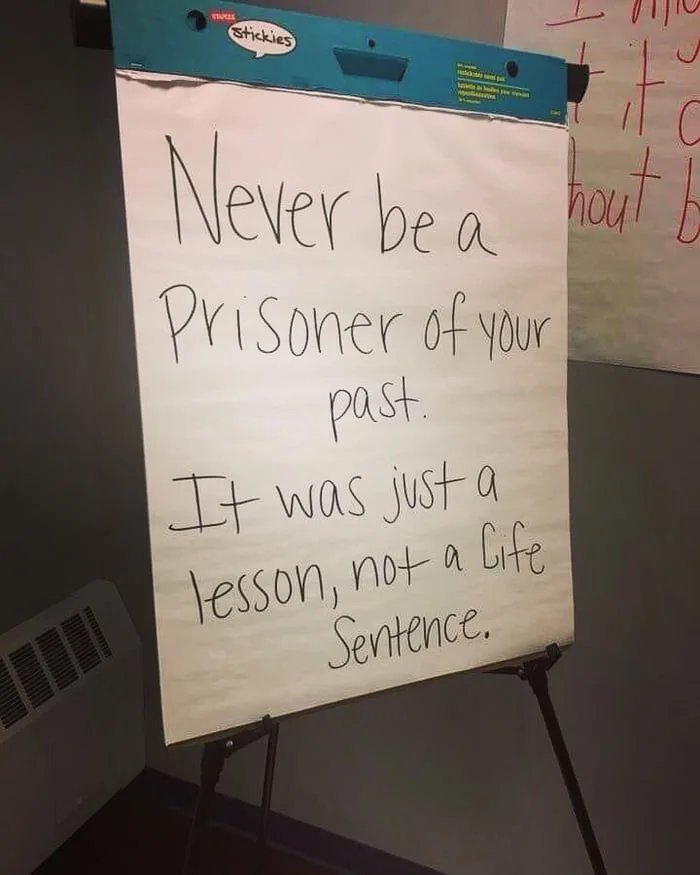 STAPLES
stickies
Never be a
Prisoner of your
past.
It was just a
lesson, not a life
Sentence.
it
hout b